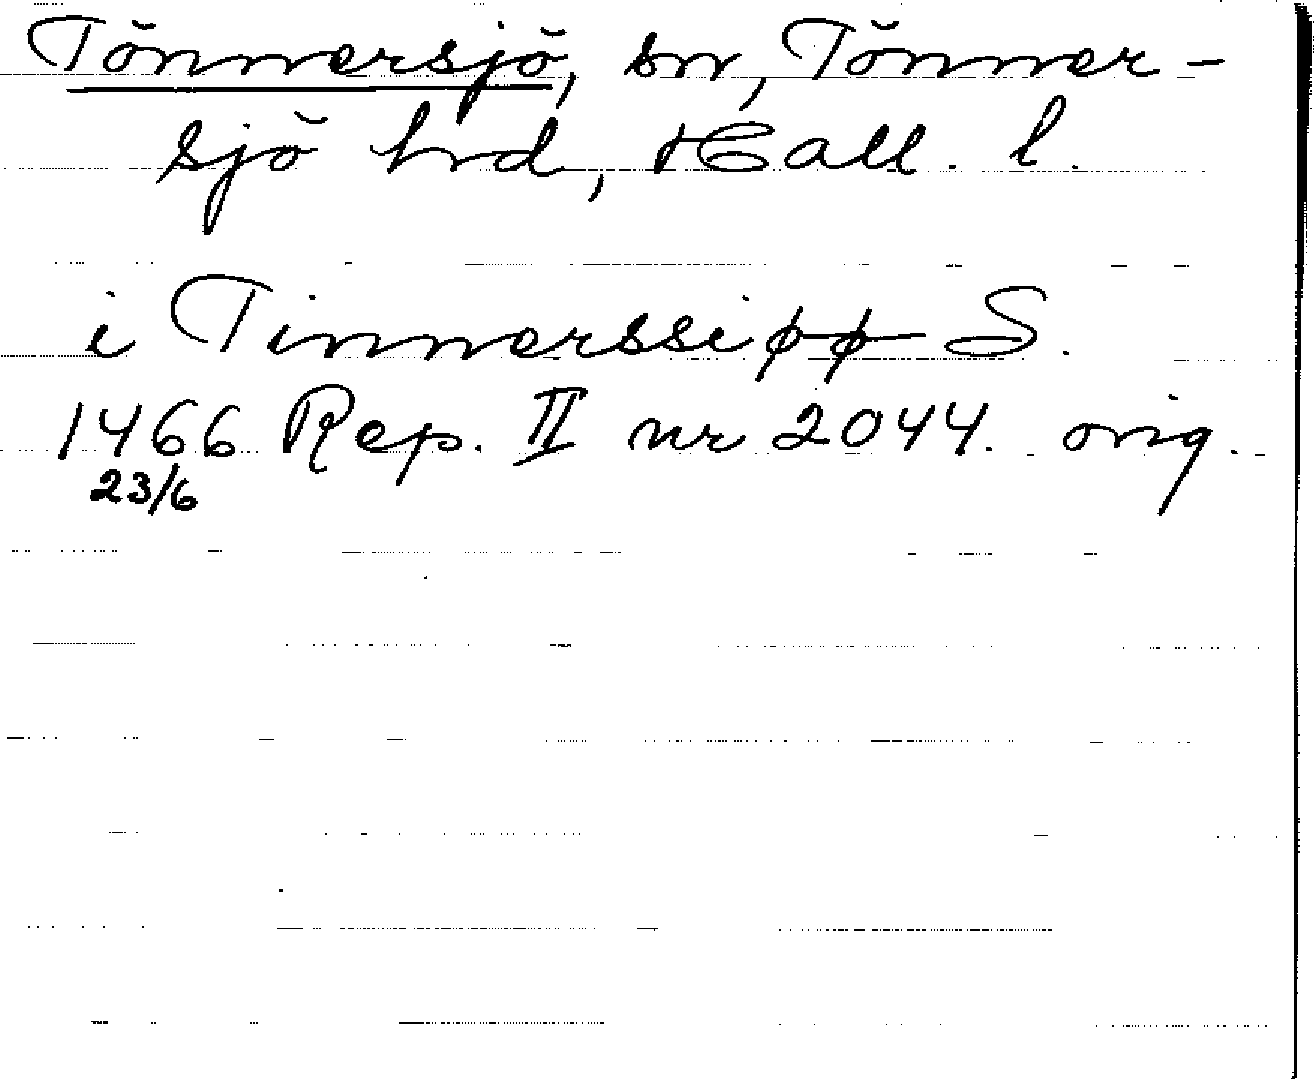 Tönnersjö, sn, Tönner-
sjö hrd, Hall. l.
i Tinnerssiøø S.
1466 Rep. II nr 2044. orig.
23/6